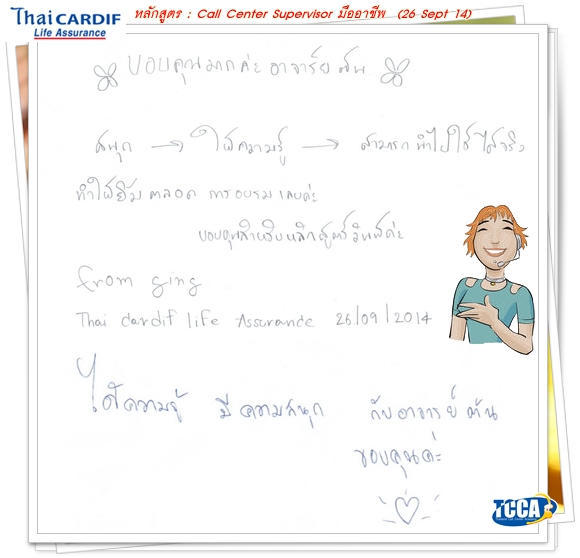 ThaiCARDIF
Life Assurance
หลักสูตร : Call Center Supervisor มืออาชีพ (26 Sept 14)
ขอบคุณมากค่ะ อาจารย์
สนุก → ให้ความรู้ → สามารถนำไปใช้ได้จริง
ทำให้ยิ้มตลอด การอบรมเลยค่ะ
ขอบคุณสำหรับหลักสูตรวันนี้ค่ะ
from ging
Thai cardif life Assurance 26/09/2014
ได้ความรู้ มีความสนุก กับอาจารย์
ขอบคุณค่ะ
TCCA